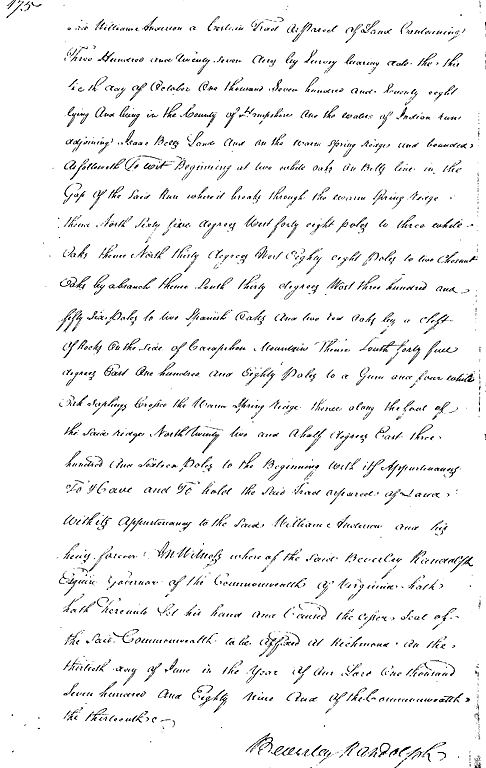 475
said William Anderson a Certain Tract or Parcel of Land Containing
Three Hundred and Twenty Seven Acres by Survey bearing date the thir
tieth day of October One thousand Seven hundred and Seventy eight
lying And being in the County of Hampshire on the waters of Indian run
adjoining Isaac Betts Land And on the warm Spring ridges and bounded
as followeth To wit Beginning at two white oaks on Betts line in the
Gap of the Said Run where it breaks through the warm Spring ridge
thence North Sixty five degrees West forty eight poles to three white
Oaks thence North thirty degrees West Eighty eight Poles to two Chesnut
Oaks by a branch thence South thirty degrees West three hundred and
fifty Six Poles to two Spanish Oaks And two red oaks by a cleft
of Rocks On the Side of Cacapehon Mountain Thence South forty five
degrees East One hundred and Eighty Poles to a Gum and four white
Oak Saplings Cross the Warm Spring ridge thence along the foot of
the Said ridges North twenty two and a half degrees East three
hundred And Sixteen Poles to the Beginning with its Appurtenances
To Have and To hold the Said Tract or parcel of Land
With its Appurtenances to the Said William Anderson and his
heirs forever In Witness where of the Said Beverley Randolph
Esquire Governor of the Commonwealth of Virginia hath
hath hereunto Set his hand and Caused the lesser Seal of
the Said Commonwealth to be Affixed at Richmond on the
thirtieth day of June in the Year of our Lord One thousand
Seven hundred And Eighty Nine And of the Commonwealth
the thirteenth
Beverley Randolph